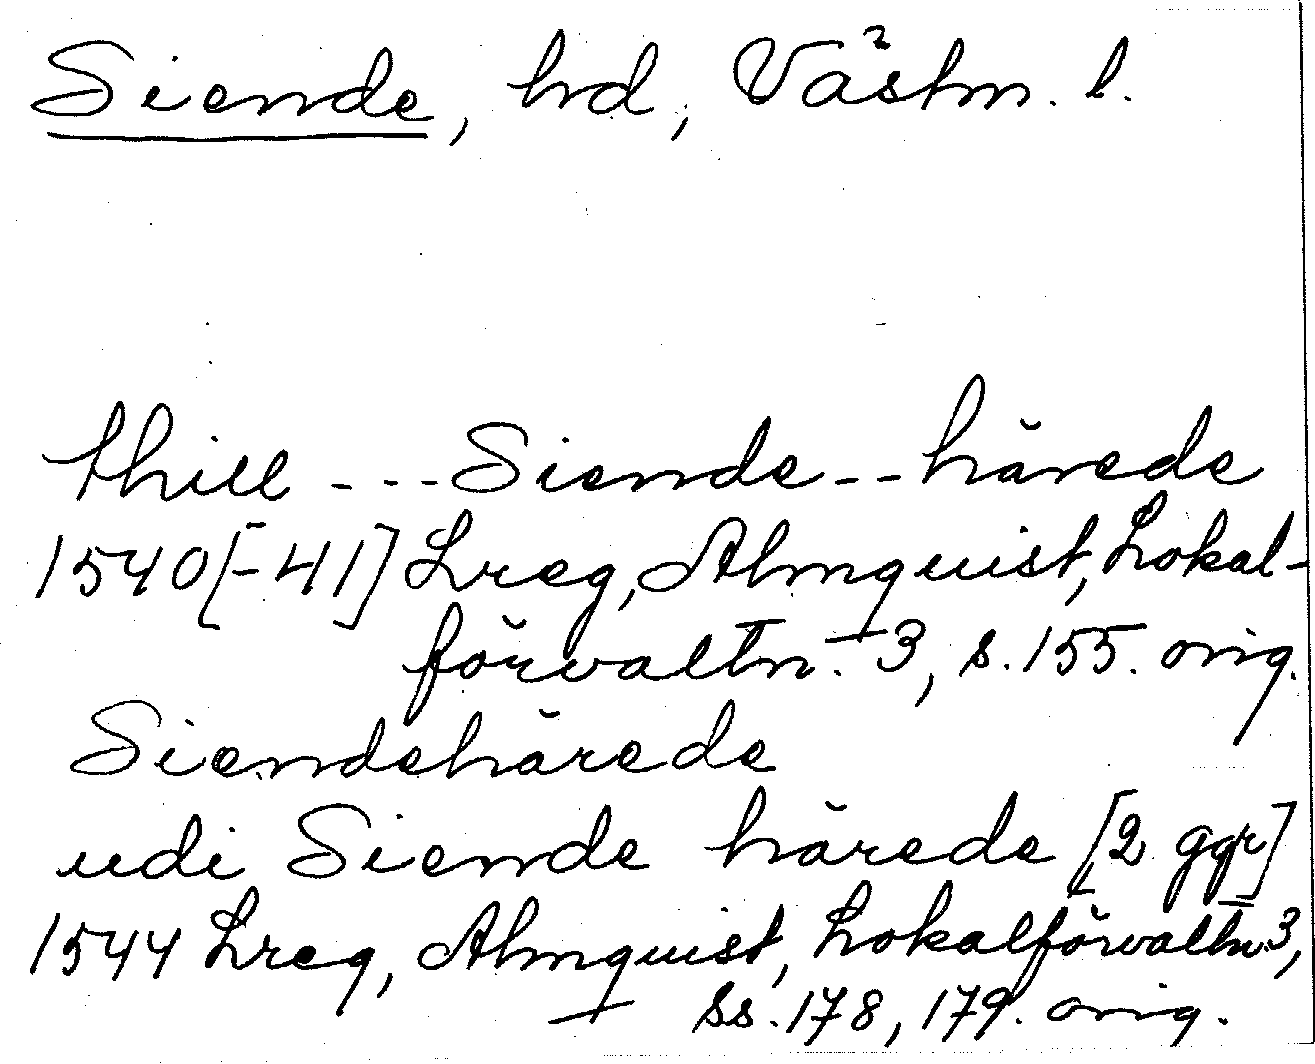 Siende, hd, Västm. l.
thill --- Siende -- härede
1540[-41] Lreg, Almquist, Lokal-
förvaltn. 3, s. 155. orig.
Siendehärede
udi Siende härede [2 ggr]
1544 Lreg, Almquist, Lokalförvaltn 3,
ss. 178, 179. orig.